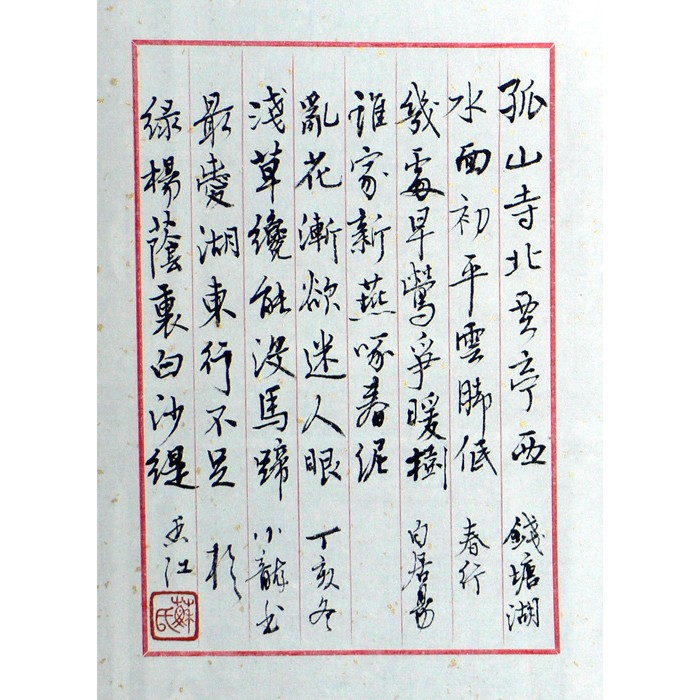 孤山寺北賈亭西
水面初平雲脚低
幾處早鶯爭暖樹
誰家新燕啄春泥
亂花漸欲迷人眼
淺草纔能沒馬蹄
最愛湖東行不足
綠楊蔭裏白沙堤
錢塘湖
春行
白居易
丁亥冬
小龍书
於
香江
蘇氏